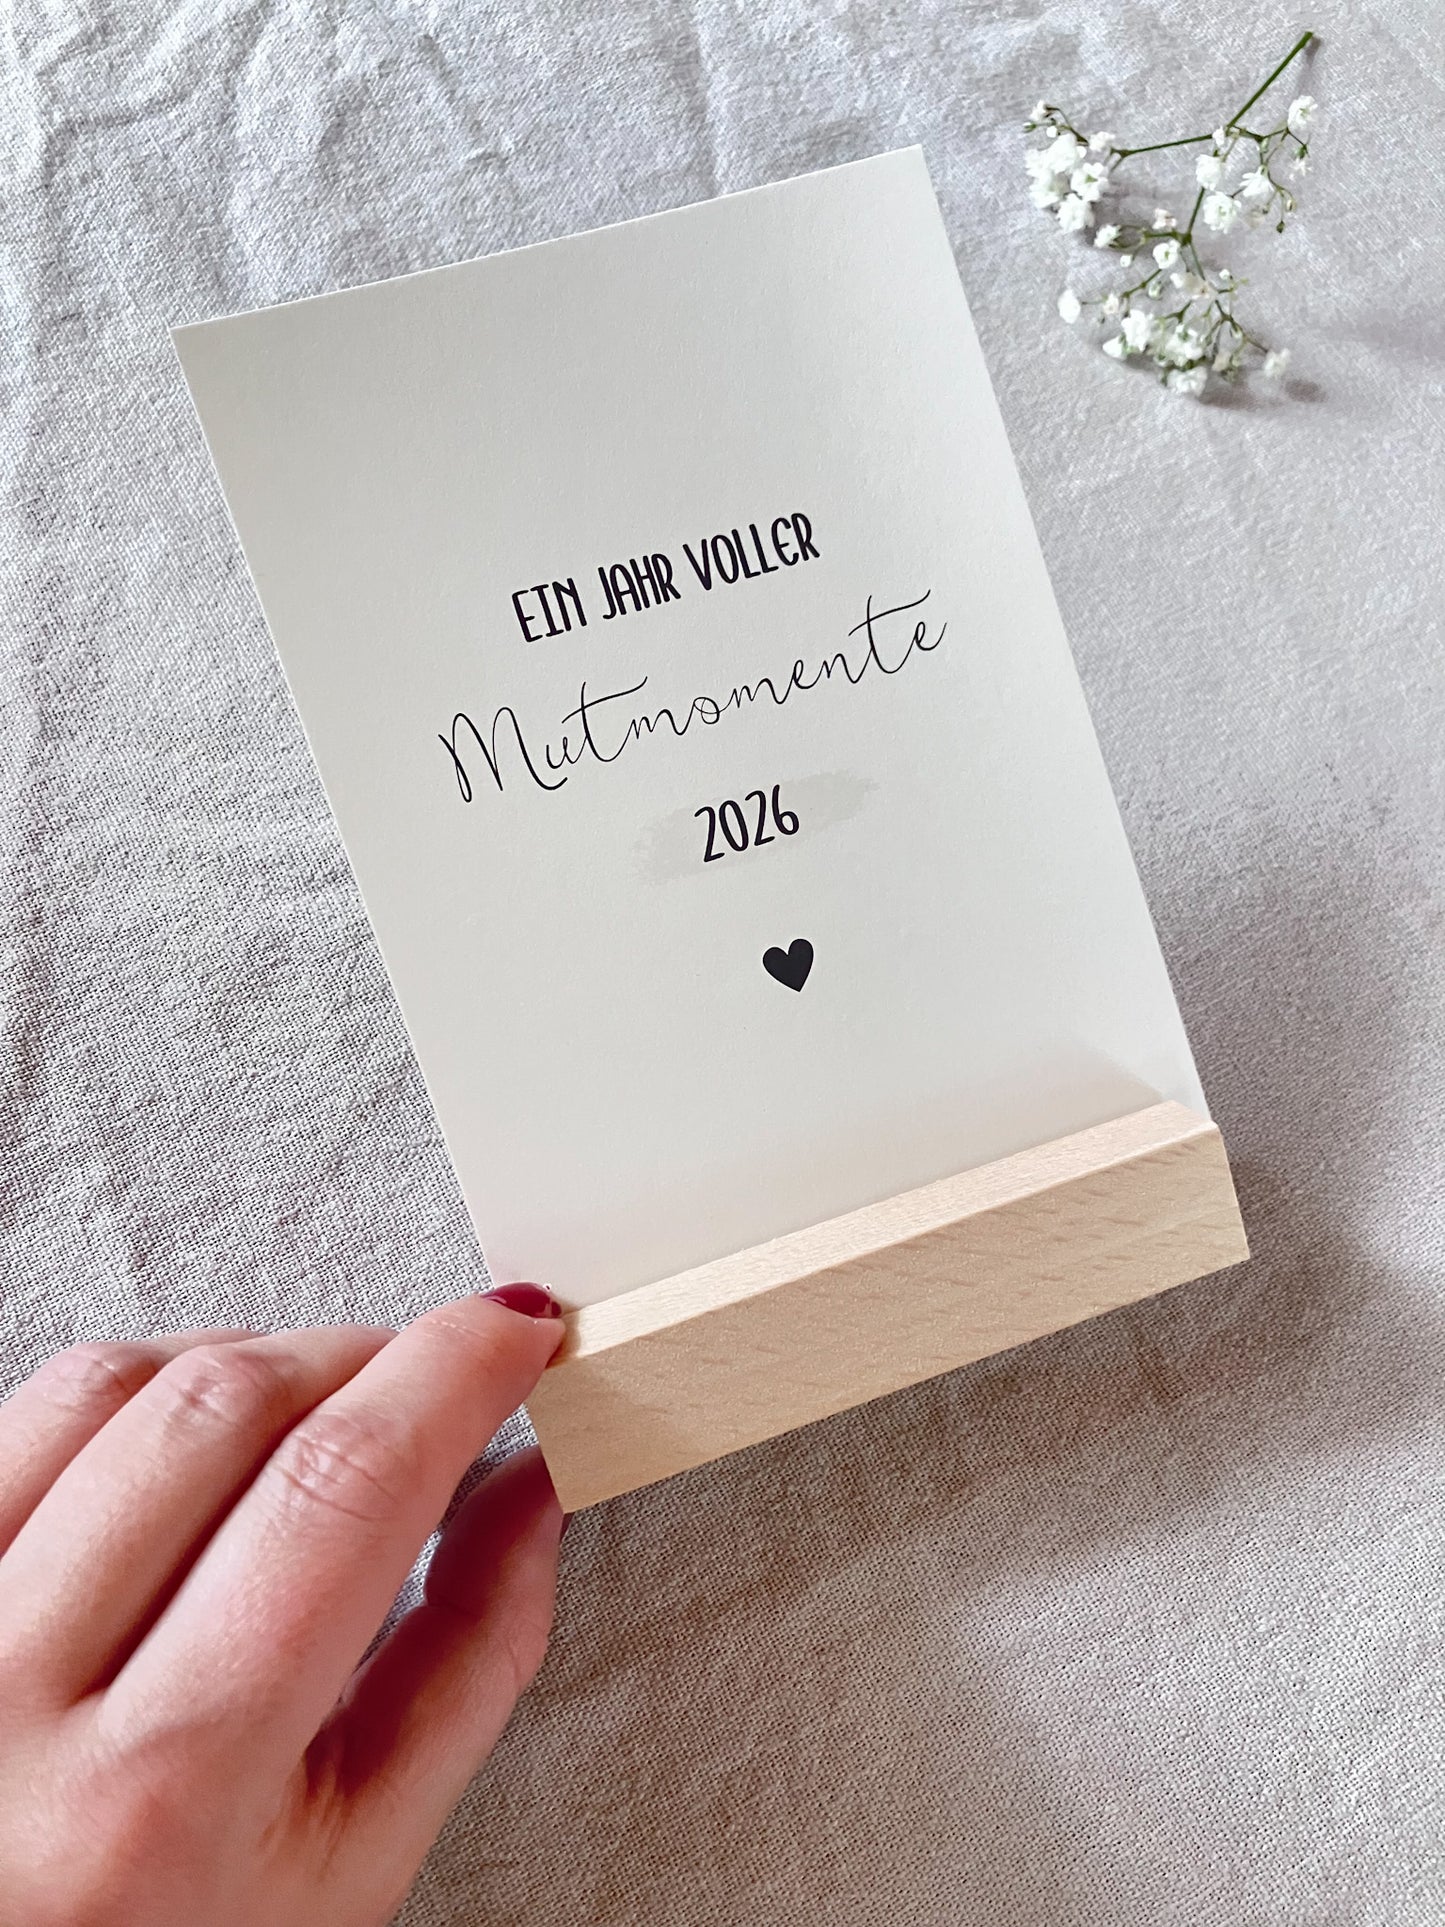 EIN JAHR VOLLER
Mutmomente
2026